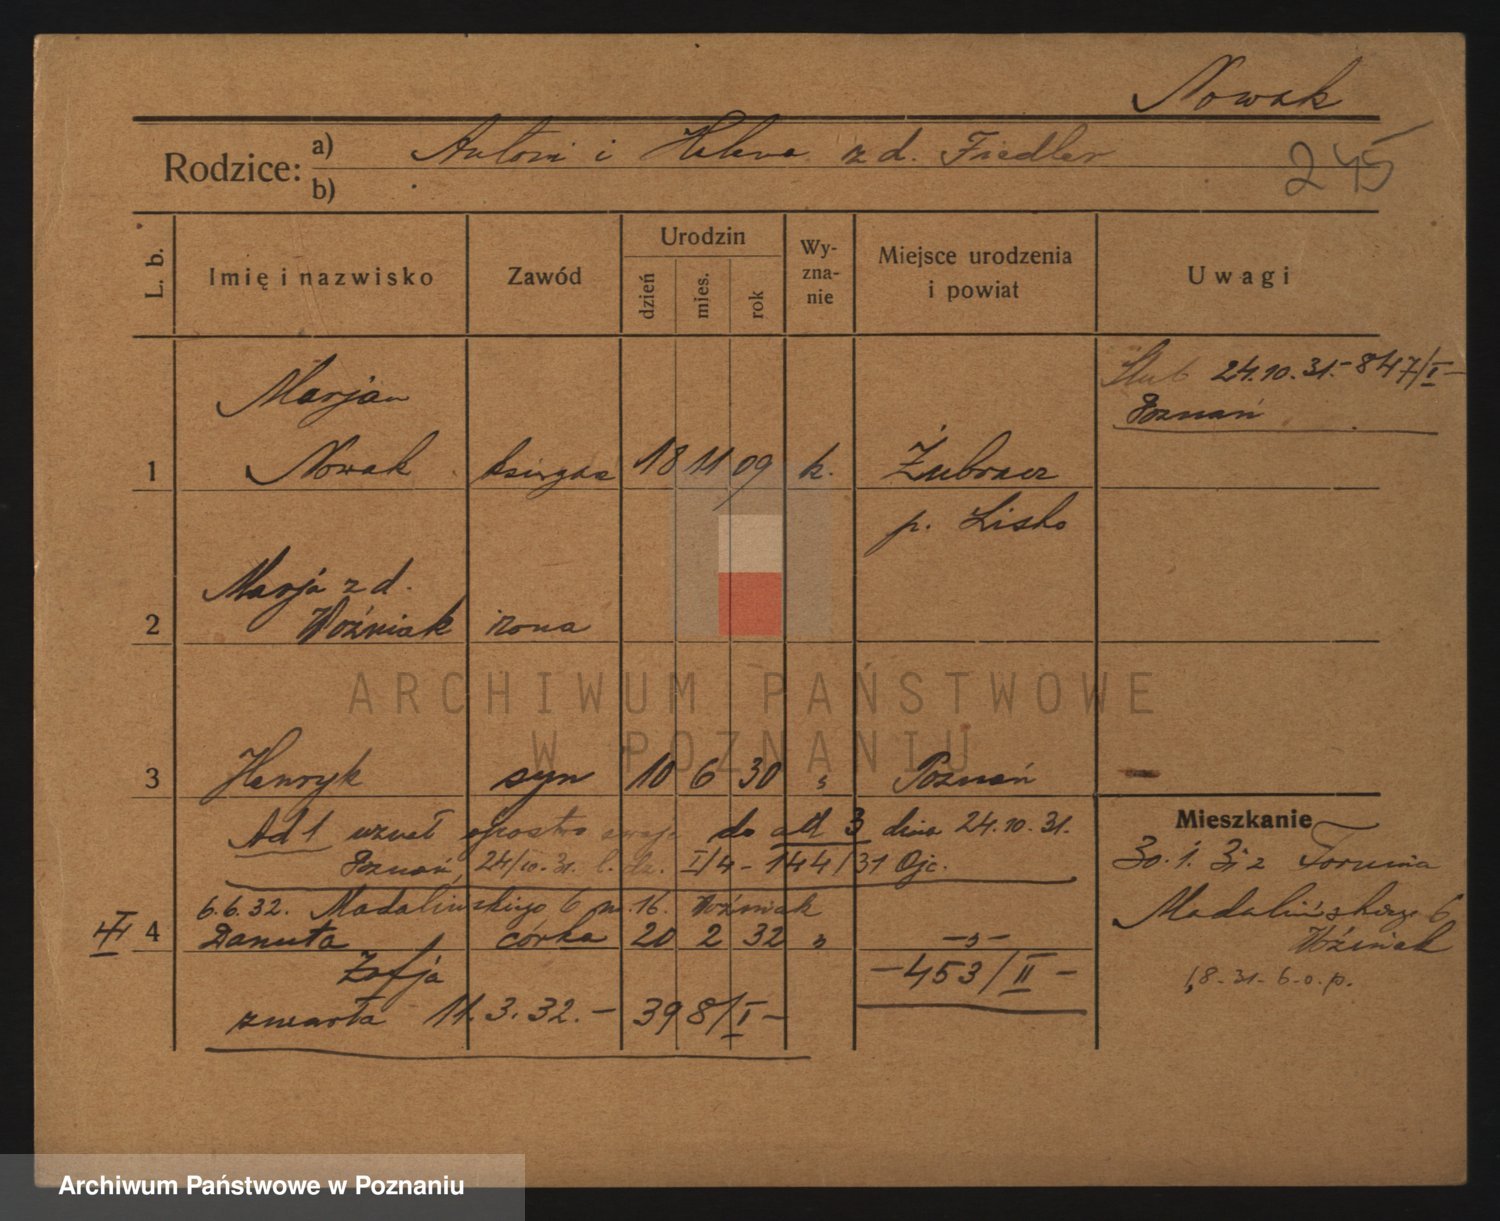 Nowak
Rodzice: a) Antoni i Helena z d. Fiedler
b)
245
L. b.
Imię i nazwisko
Zawód
Urodzin
dzień
mies.
rok
Wy-
zna-
nie
Miejsce urodzenia
i powiat
Uwagi
Ślub 24.10.31.-847/I-
Poznań
Marjan
1 Nowak księgar 18 11 09 k. Żubracz
p. Lisko
Marja z d.
2 Woźniak żona
3 Henryk syn 10 6 30 " Poznań
Ad 1 uznał ojcostwo swoje do ad. 3 dnia 24.10.31.
Poznań, 24/10.31. l. dz. I/4-144/31 Ojc.
Mieszkanie
30.1.31 z Torunia
Madalińskiego 6
Woźniak
1,8-31-6.o.p.
6.6.32. Madalińskiego 6 m.16. Woźniak
4 Danuta córka 20 2 32 " -"-
Zofja
-453/II-
zmarła 11.3.32.- 398/I-
ARCHIWUM PAŃSTWOWE
W POZNANIU
Archiwum Państwowe w Poznaniu